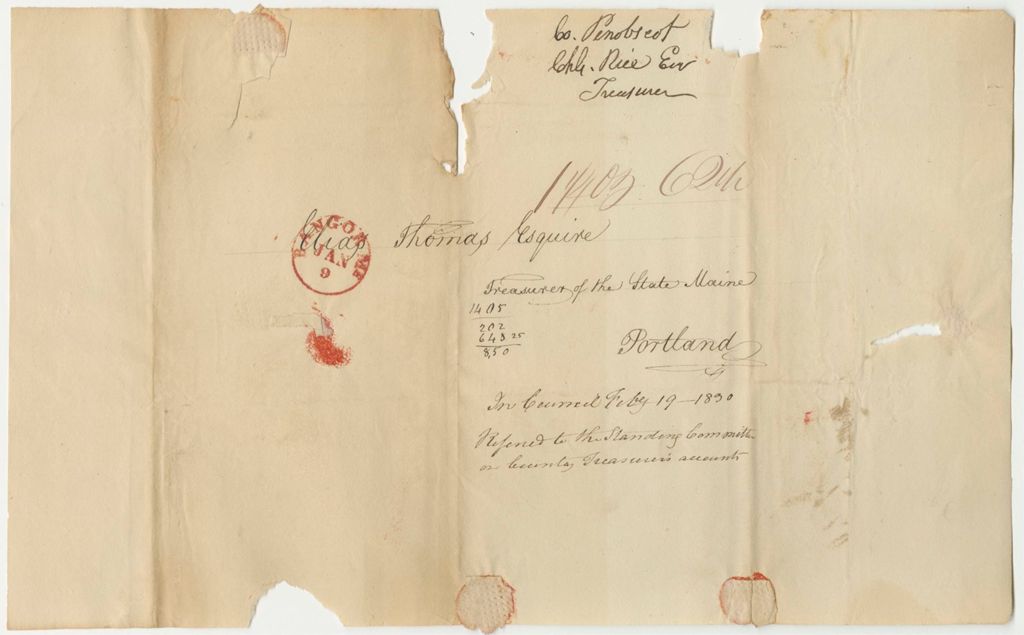 Co. Penobscot
Chs. Rice Esq
Treasurer
1403
BANGOR, ME.
JAN
9
Elias Thomas Esquire
Treasurer of the State Maine
1405
202
643 25
8,50
Portland
In Council Feby 19 - 1830
Refered to the Standing Committe
on County Treasurer's accounts